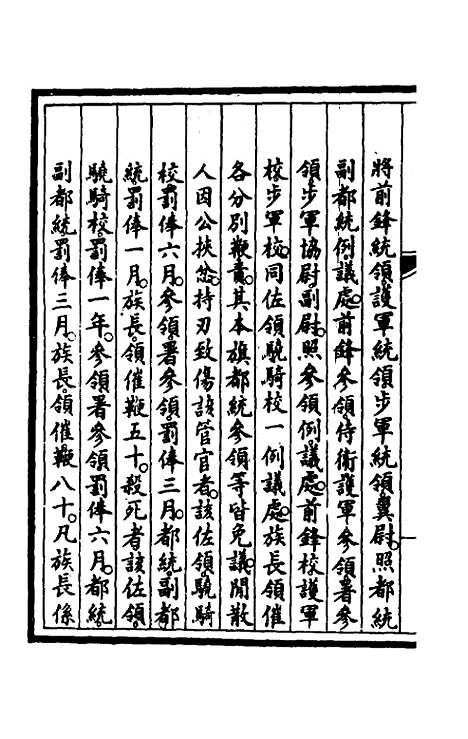 將前鋒統領護軍統領步軍統領翼尉照都統
副都統例議處前鋒參領侍衛護軍參領署參
領步軍協尉副尉照參領例議處前鋒校護軍
校步軍校同佐領驍騎校一例議處族長領催
各分別鞭責其本旗都統參領等皆免議閒散
人因公挾忿持刃致傷該管官者該佐領驍騎
校罰俸六月參領署參領罰俸三月都統副都
統罰俸一月族長領催鞭五十殺死者該佐領
驍騎校罰俸一年參領署參領罰俸六月都統
副都統罰俸三月族長領催鞭八十凡族長係